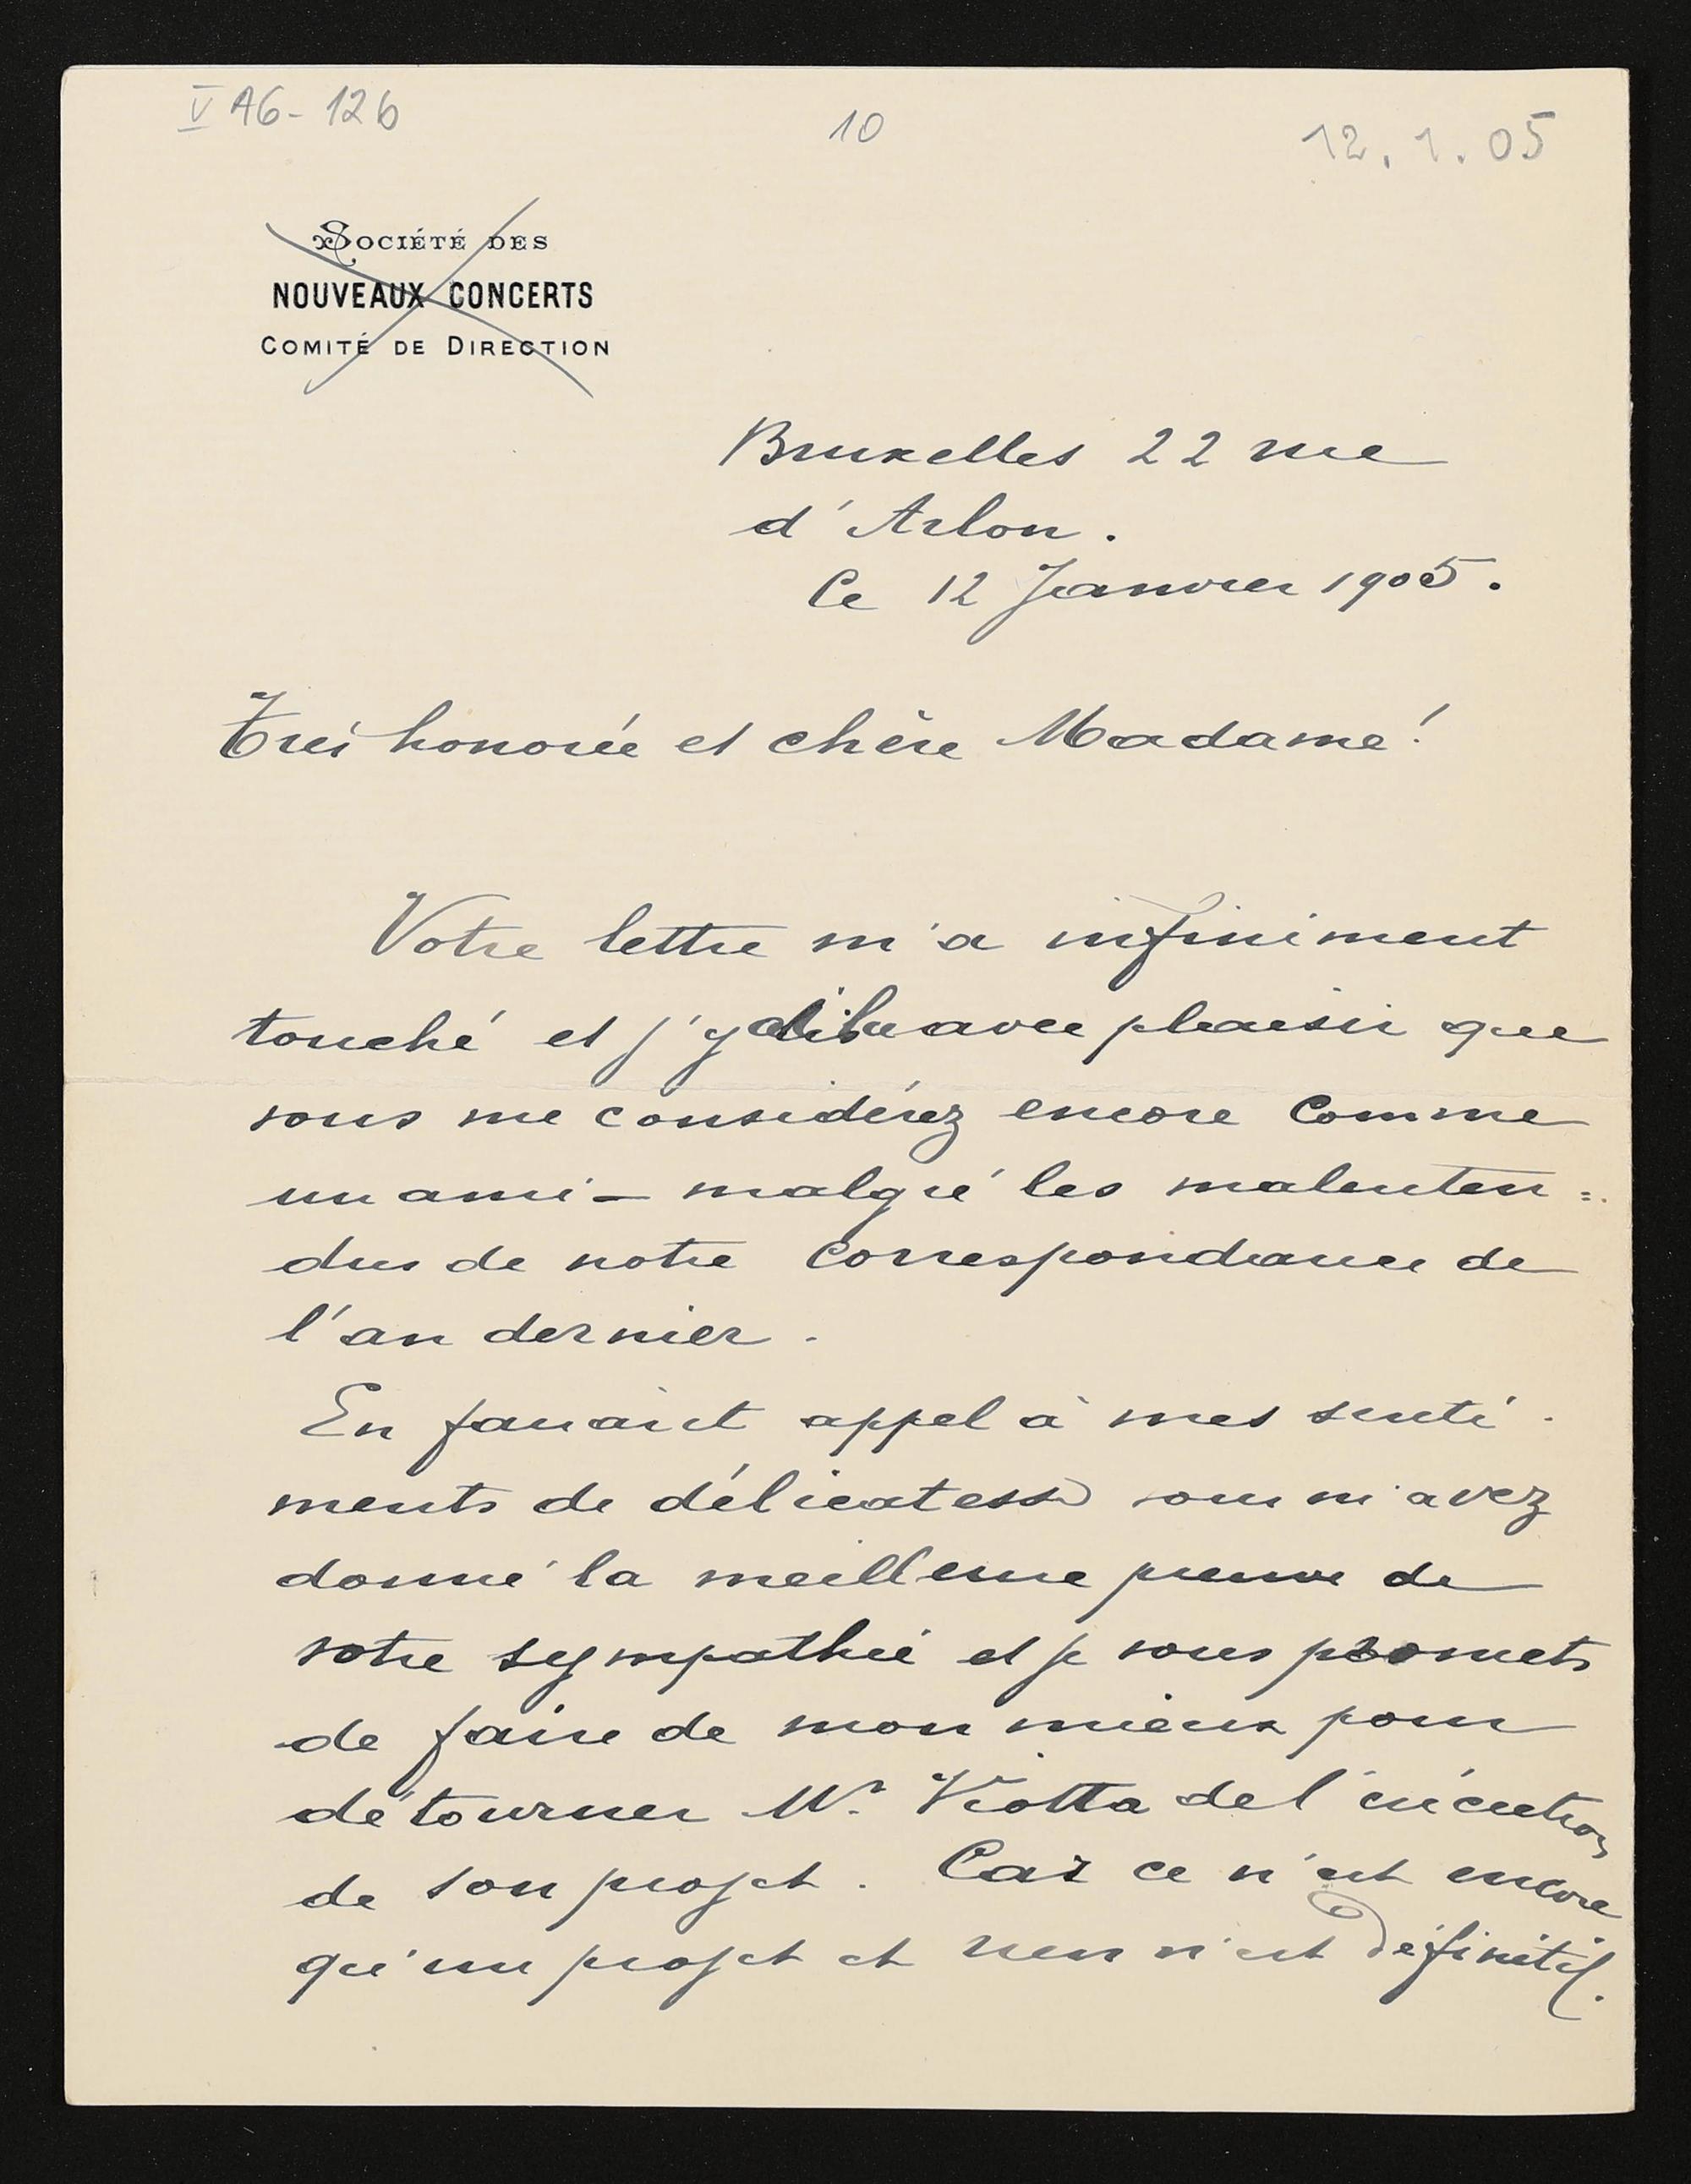 V A6 - 126
10
12. 1. 05
SOCIÉTÉ DES
NOUVEAUX CONCERTS
COMITÉ DE DIRECTION
Bruxelles 22 rue
d'Arlon.
Ce 12 Janvier 1905.
Très honorée et chère Madame!
Votre lettre m'a infiniment
touché et j'y avec plaisir que
vous me considérez encore comme
un ami – malgré les malenten=
dus de notre correspondance de
l'an dernier.
En faisant appel à mes senti-
ments de délicatesse vous m'avez
donné la meilleure preuve de
votre sympathie et je vous promets
de faire de mon mieux pour
détourner Mr. Viotta de l'exécution
de son projet. Car ce n'est encore
qu'un projet et rien n'est définitif.